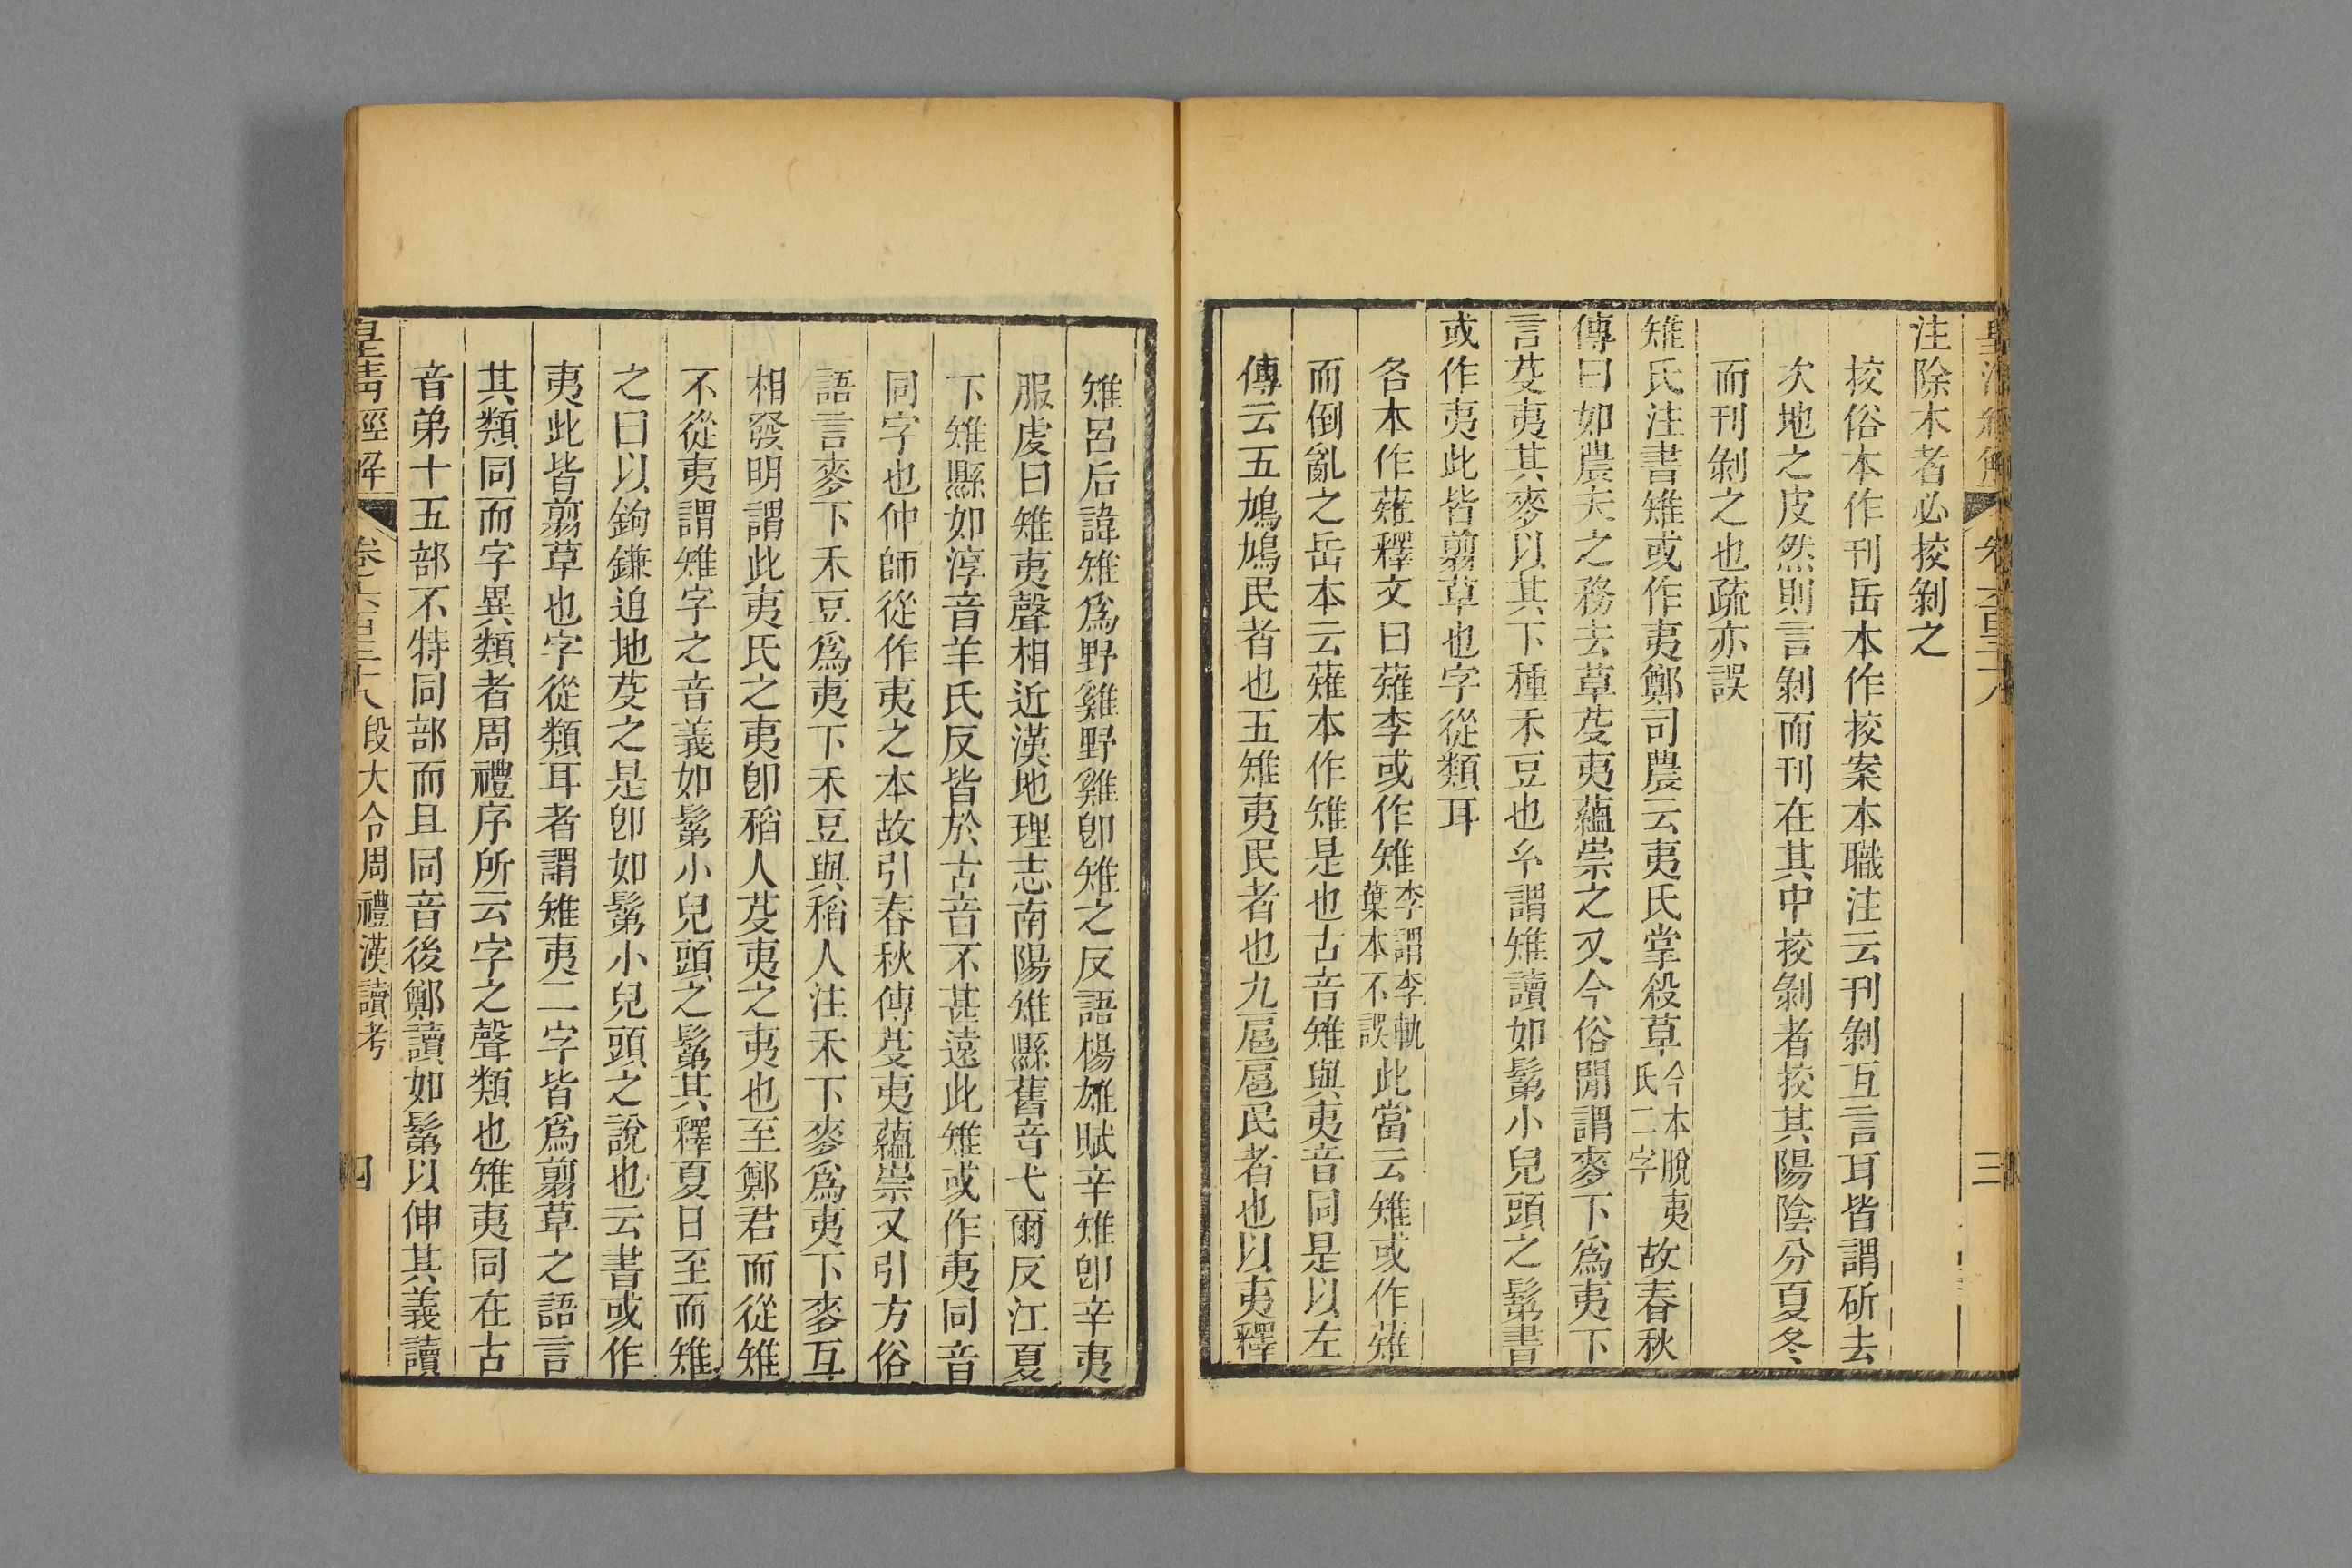 注除木者必挍剝之
挍俗本作刊岳本作挍案本職注云刊剝互言耳皆謂斫去
次地之皮然則言剝而刊在其中挍剝者挍其陽陰分夏冬
而刊剝之也疏亦誤
雉氏注書雉或作夷鄭司農云夷氏掌殺草今本脫夷氏二字故春秋
傳曰如農夫之務去草芟夷蘊崇之又今俗閒謂麥下爲夷下
言芟夷其麥以其下種禾豆也玄謂雉讀如鬀小兒頭之鬀書
或作夷此皆翦草也字從類耳
各本作薙釋文曰薙李或作雉李謂李軌葉本不誤此當云雉或作薙
而倒亂之岳本云薙本作雉是也古音雉與夷音同是以左
傳云五鳩鳩民者也五雉夷民者也九扈扈民者也以夷釋
雉呂后諱雉爲野雞野雞卽雉之反語楊雄賦辛雉卽辛夷
服虔曰雉夷聲相近漢地理志南陽雉縣舊音弋爾反江夏
下雉縣如淳音羊氏反皆於古音不甚遠此雉或作夷同音
同字也仲師從作夷之本故引春秋傳芟夷蘊崇又引方俗
語言麥下禾豆爲夷下禾豆與稻人注禾下麥爲夷下麥互
相發明謂此夷氏之夷卽稻人芟夷之夷也至鄭君而從雉
不從夷謂雉字之音義如鬀小兒頭之鬀其釋夏日至而雉
之曰以鉤鎌迫地芟之是卽如鬀小兒頭之說也云書或作
夷此皆翦草也字從類耳者謂雉夷二字皆爲翦草之語言
其類同而字異類者周禮序所云字之聲類也雉夷同在古
音弟十五部不特同部而且同音後鄭讀如鬀以伸其義讀
皇清經解 卷六百三十八 段大令周禮漢讀考 四